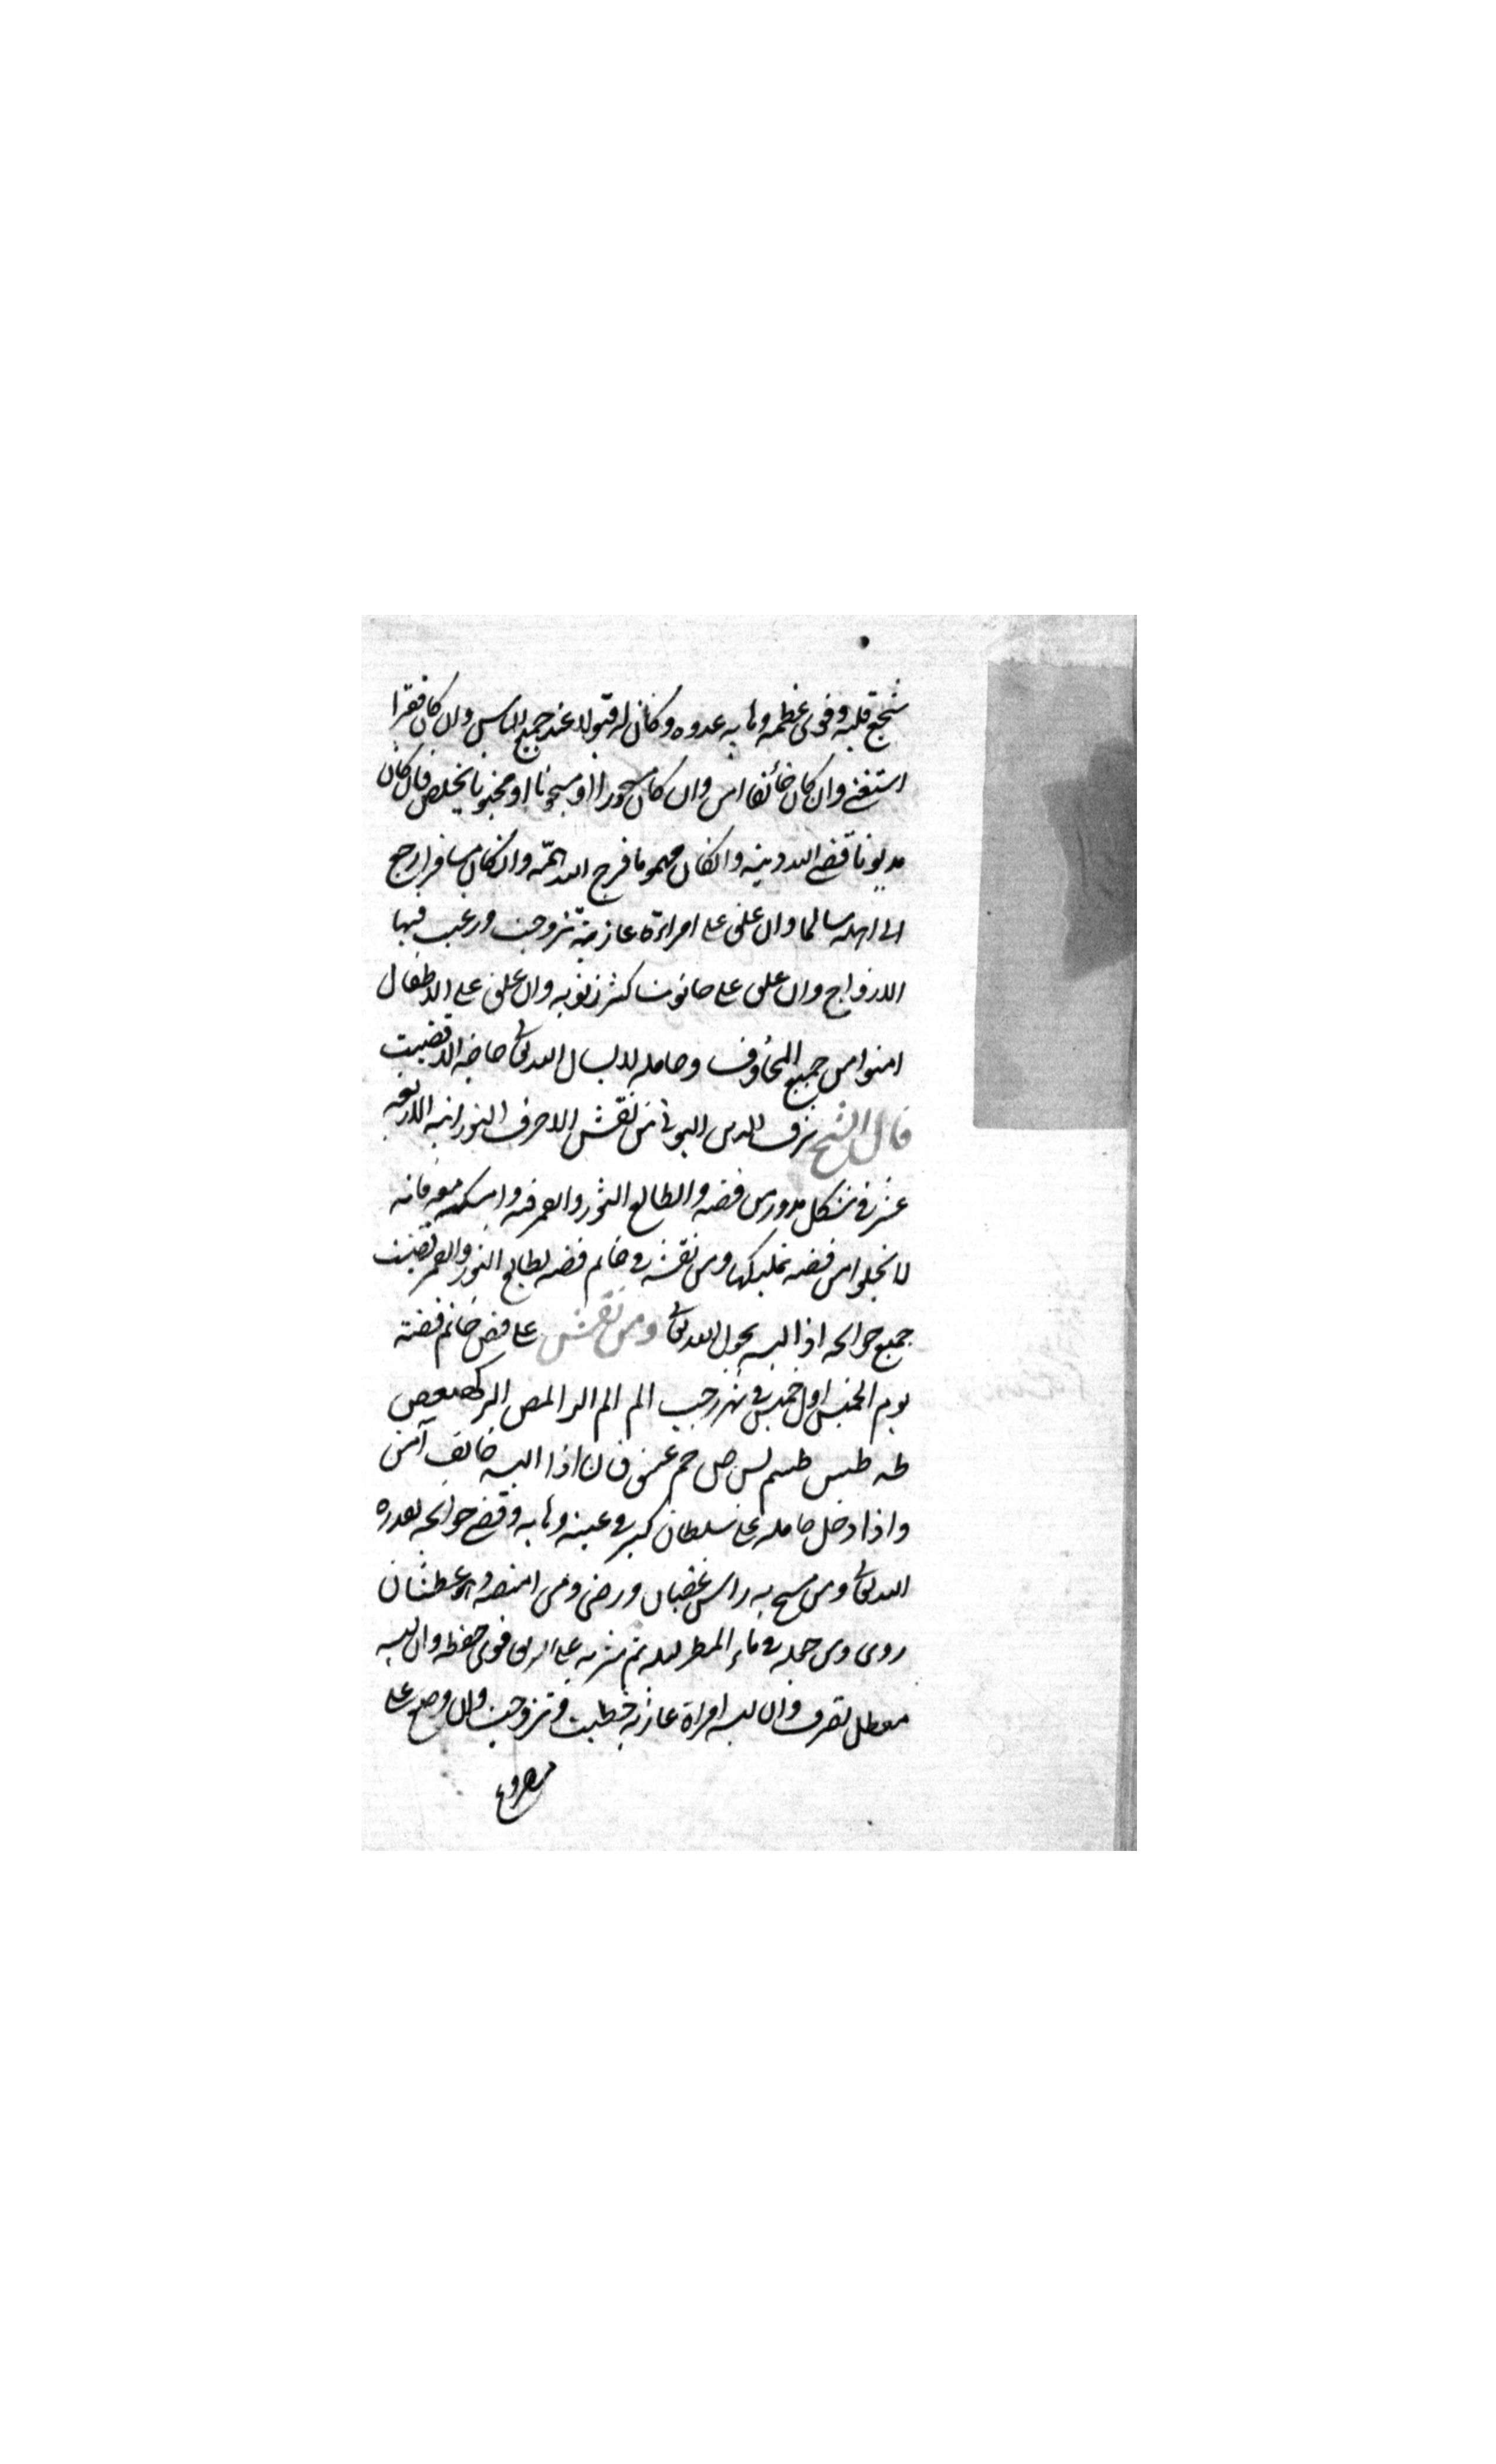 شجع قلبه وقوى عظمه وهابه عدوه وكان له قبولا عند جميع الناس وان كان فقرا
استغنى وان كان خائفا امن وان كان مسحورا او مسجونا او مخبوبا يخلص فان كان
مديونا قضى الله دينه وانكان مهموما فرج الله همّه وان كان مسافرا رجع
الى اهله سالما وان علق على امراءة عازبة تزوجت ورغب فيها
الازواج وان علق على حانوت كثر زبونه وان علق على الاطفال
امنوا من جميع المخاوف وحامله لا يسال الله تعالى حاجة الا قضيت
قال الشيخ شرف الدين البوني من نقش الاحرف النورانية الاربعة
عشر في شكل مدور من فضه والطالع الثور والقمر فيه وامسكه معه فانه
لا يخلوا من فضه يمليكها ومن نقشه في خاتم فضه بطالع الثور والقمر قضيت
جميع حوائجه اذا لبسه بحول الله تعالى ومن نقش على فص خاتم فضته
يوم الخميس اول خميس في شهر رجب الم الم الر المص المر كهيعص
طه طس طسم يس ص حم عسق ق ن اذا لبسه خائف آمن
واذا دخل حامله على سلطان كبر في عينه وهابه وقضى حوائجه بقدرة
الله تعالى ومن مسح به راس غضبان ورضى ومن امتصه وهو عطشان
روى ومن جعله في ماء المطر ليله ثم شربه على الريق قوى حفظه وان لبسه
معطل تصرف وان لبسه امراة عازبة خطبت وتزوجت وان وضع على
مصروع